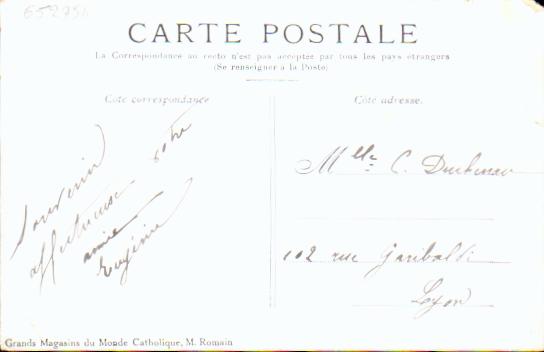 CARTE POSTALE
La Correspondance au recto n'est pas acceptée par tous les pays étrangers
(Se renseigner à la Poste)
Côté correspondance
Côté adresse.
Souvenir
affectueuse
votre
amie
Eugénie
Mlle C.
102 rue Garibaldi
Lyon
Grands Magasins du Monde Catholique, M. Romain